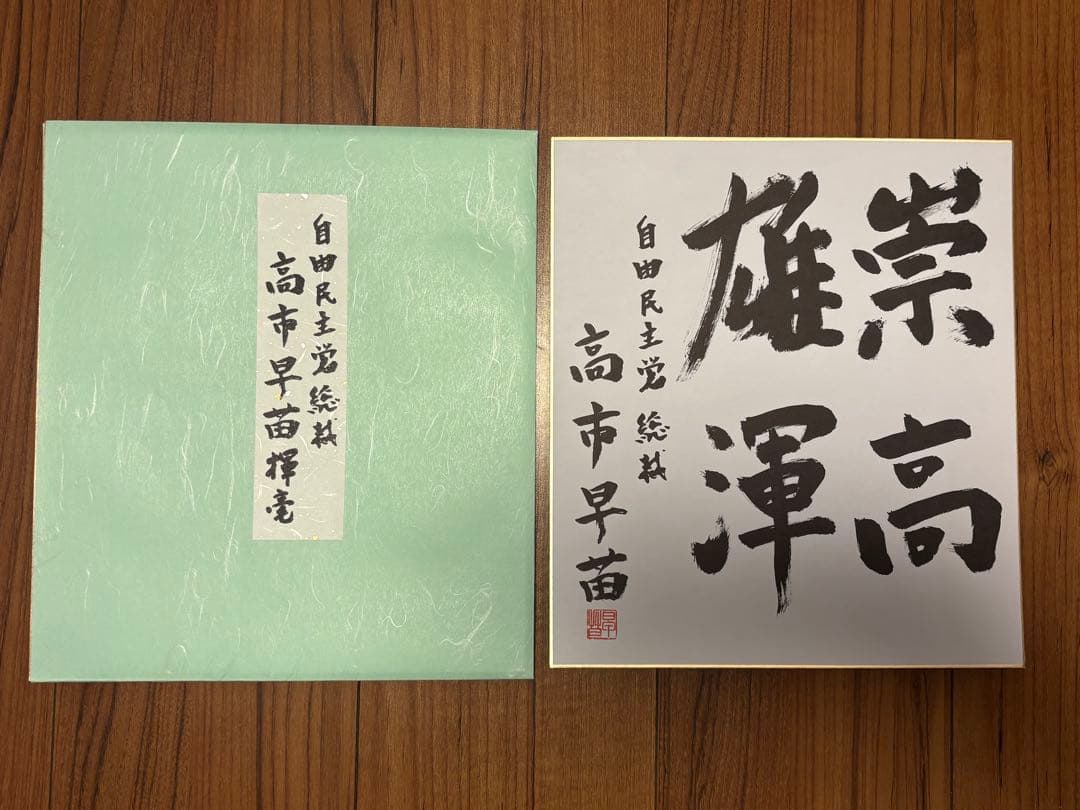 自由民主党総裁
高市早苗揮毫
崇高
雄渾
自由民主党 総裁
高市早苗
早苗